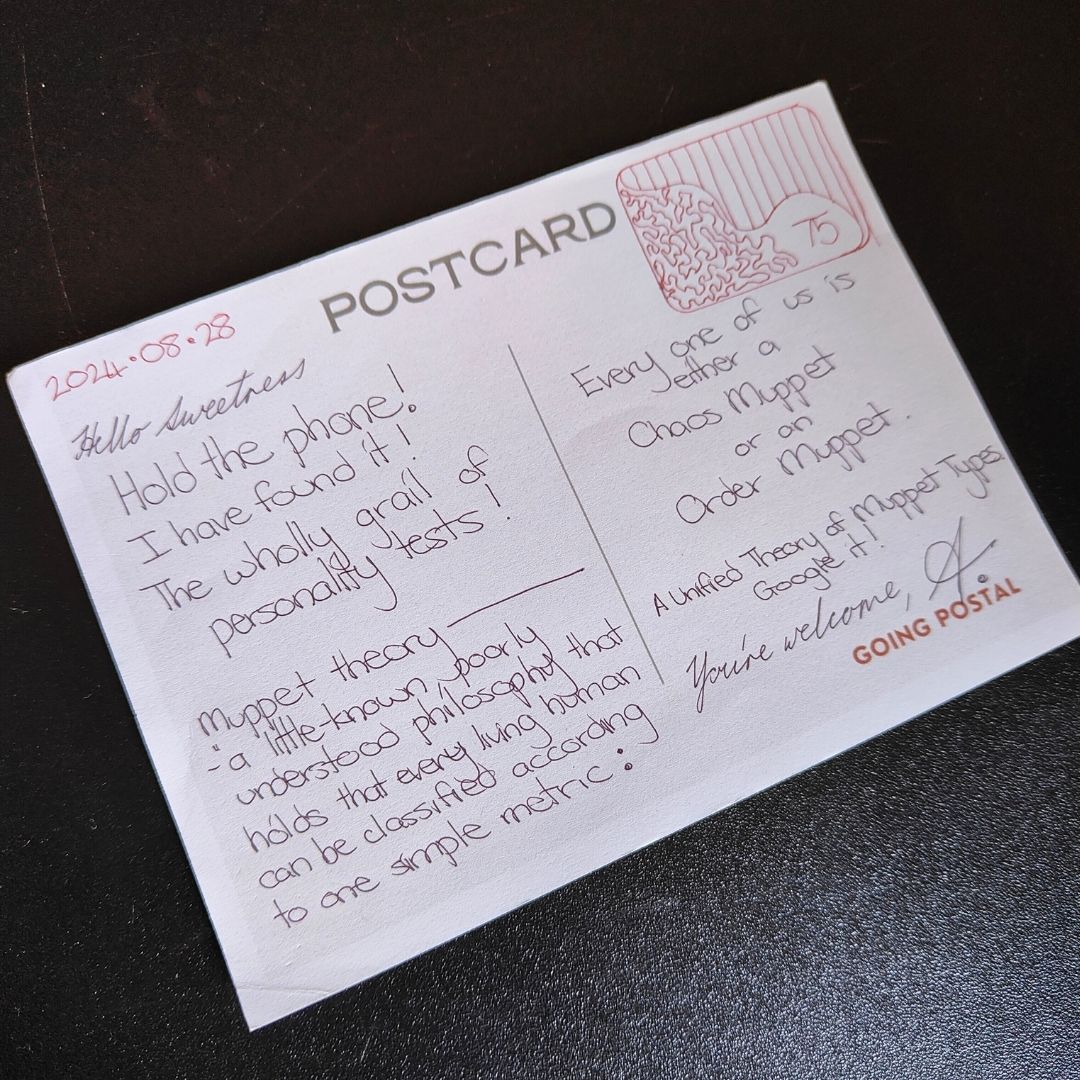 POSTCARD
75
2024.08.28
Hello Sweetness
Hold the phone!
I have found it!
The wholly grail of
personality tests!
Muppet theory —
- a little-known poorly
understood philosophy that
holds that every living human
can be classified according
to one simple metric:
Every one of us is
either a
Chaos Muppet
or an
Order Muppet.
A Unified Theory of Muppet Types.
Google it!
You're welcome, A.
GOING POSTAL